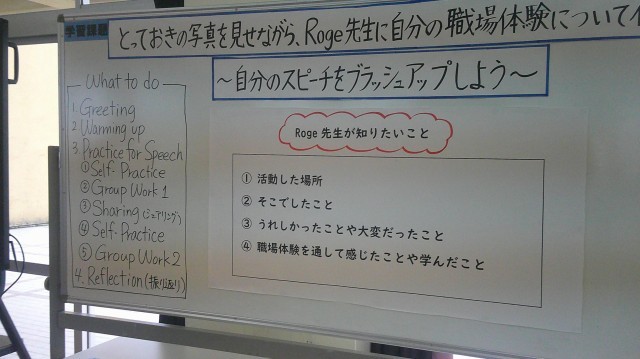 学習課題
とっておきの写真を見せながら、Roge先生に自分の職場体験について
〜自分のスピーチをブラッシュアップしよう〜
What to do
1. Greeting
2. Warming up
3. Practice for Speech
①Self-Practice
②Group Work 1
③Sharing (シェアリング)
④Self-Practice
⑤Group Work 2
4. Reflection (振り返り)
Roge 先生が知りたいこと
① 活動した場所
② そこでしたこと
③ うれしかったことや大変だったこと
④ 職場体験を通して感じたことや学んだこと